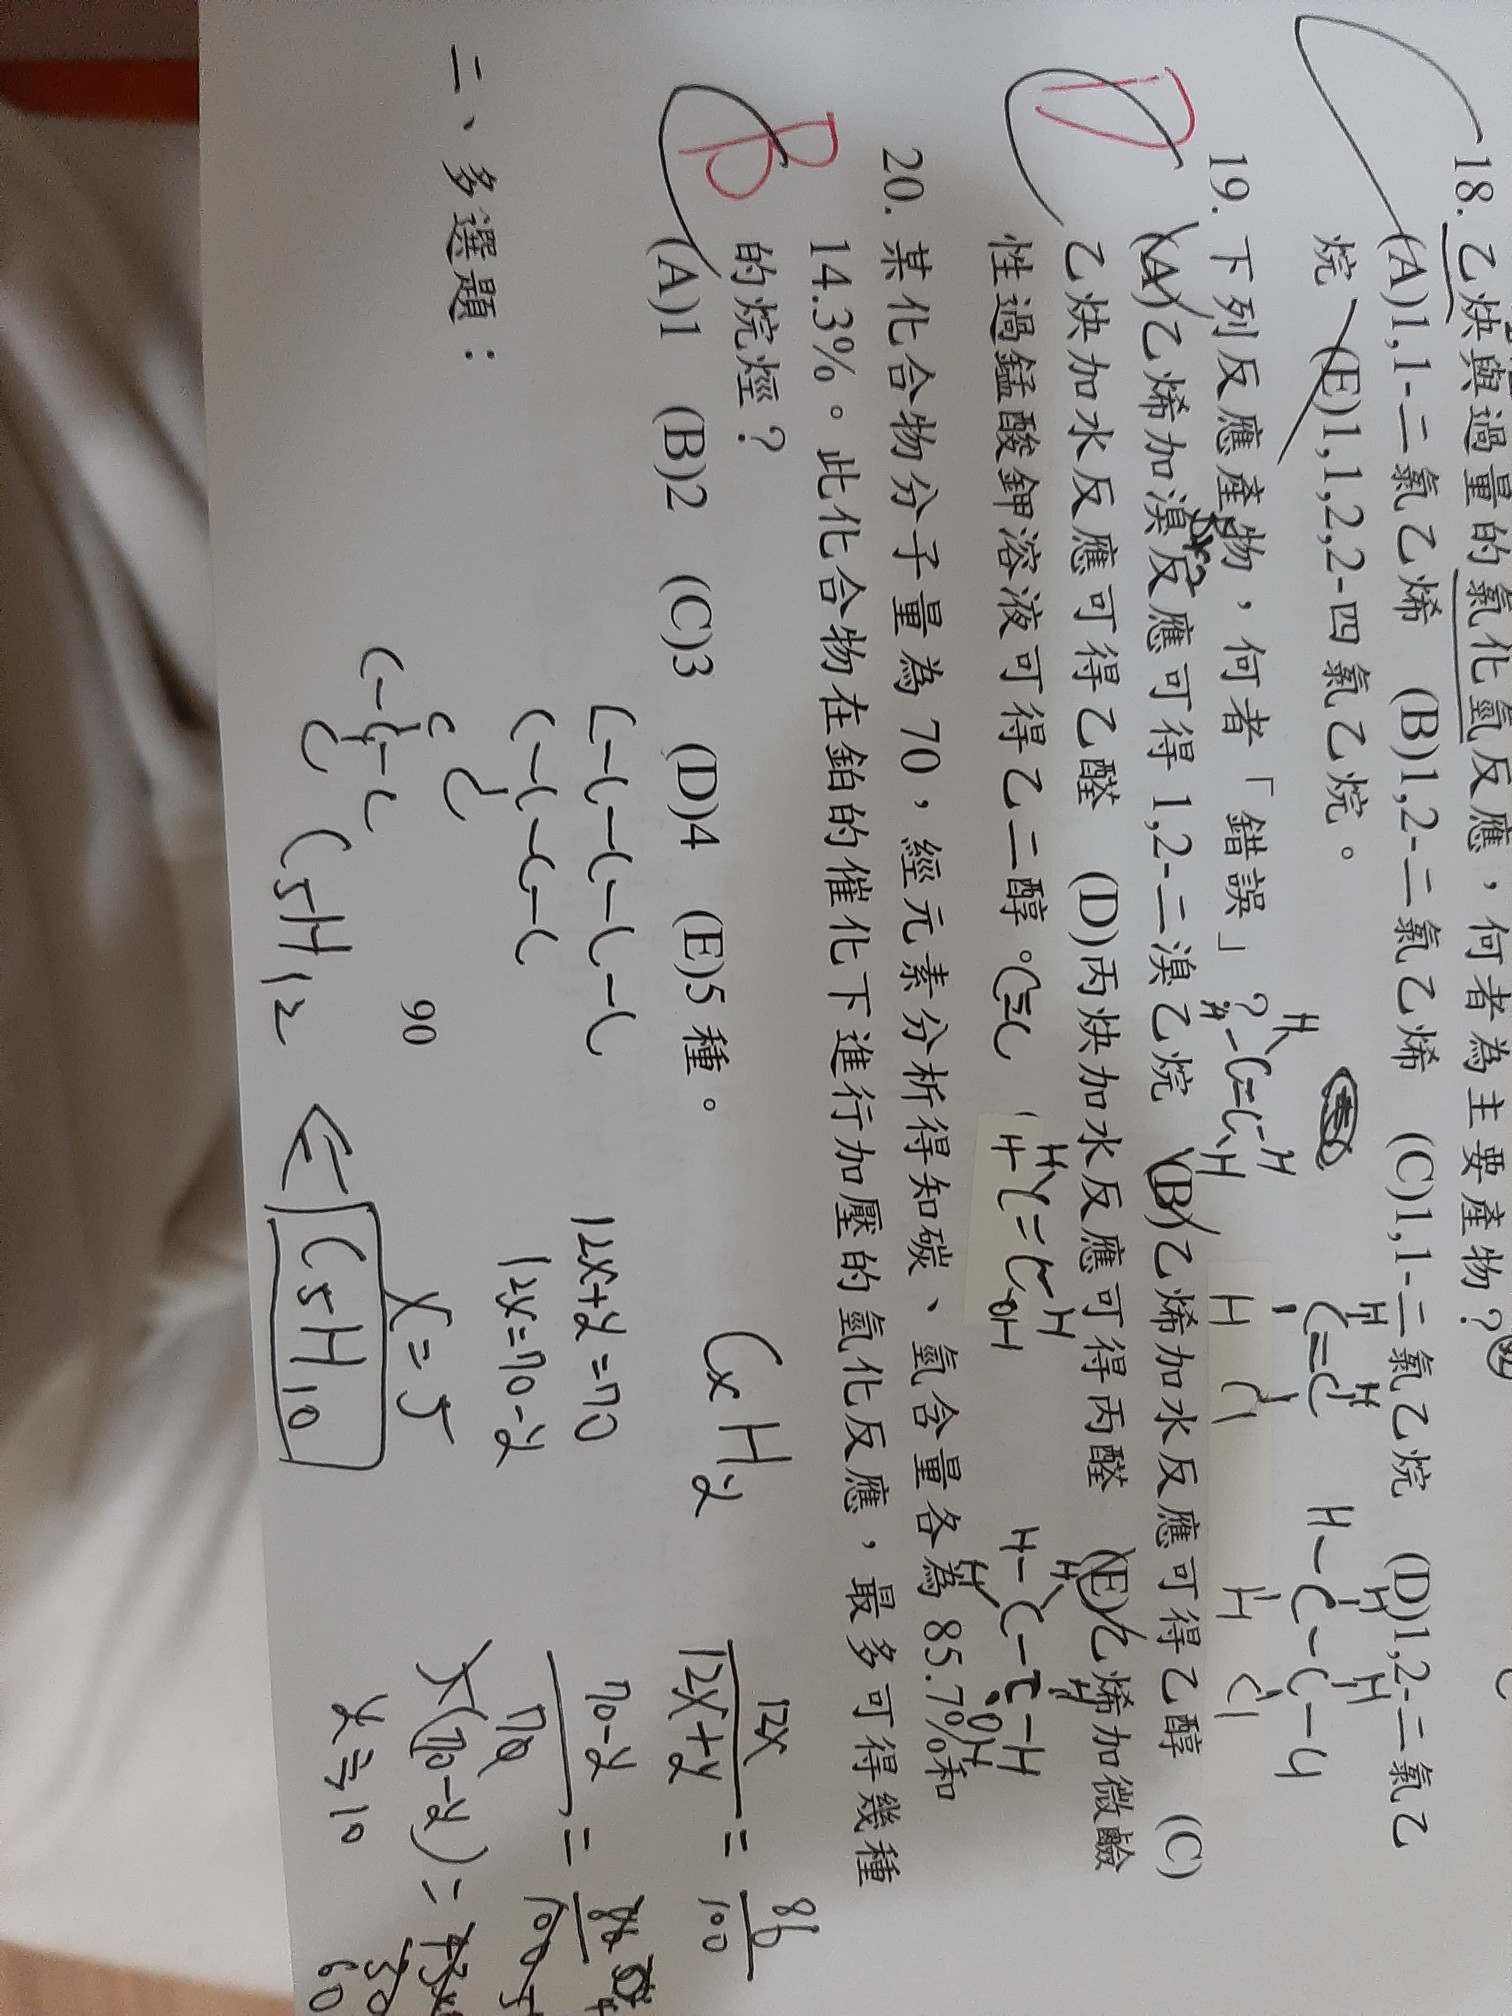 18. 乙炔與過量的氯化氫反應，何者為主要產物？
(A)1,1-二氯乙烯 (B)1,2-二氯乙烯 (C)1,1-二氯乙烷 (D)1,2-二氯乙
烷 (E)1,1,2,2-四氯乙烷。
H
C=C
H H
H-C-C-Cl
H H
H Cl
H Cl
19. 下列反應產物，何者「錯誤」？
H
H-C=C-H
H
D
(A)乙烯加溴反應可得 1,2-二溴乙烷 (B)乙烯加水反應可得乙醇 (C)
Br2
乙炔加水反應可得乙醛 (D)丙炔加水反應可得丙醛 (E)乙烯加微鹼
性過錳酸鉀溶液可得乙二醇。
C≡C
H C=C H
H OH
H-C-C-H
H H
H OH
20. 某化合物分子量為 70，經元素分析得知碳、氫含量各為 85.7%和
14.3%。此化合物在鉑的催化下進行加壓的氫化反應，最多可得幾種
的烷烴？
B
(A)1 (B)2 (C)3 (D)4 (E)5 種。
CxHy
12x
12x+y
=
86
100
C-C-C-C-C
12x+y=70
70-y
70
=
C-C-C-C
C
12x=70-y
二、多選題：
x=5
(70-y)=
C
C-C-C
C
C5H12
C5H10
y≒10
60
90